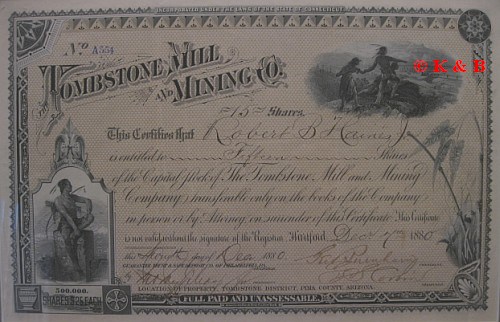 INCORPORATED UNDER THE LAWS OF THE STATE OF CONNECTICUT.
No. A554
© K & B
THE TOMBSTONE MILL
AND MINING CO.
15 SHARES.
This Certifies that Robert B Haines Jr
is entitled to Fifteen Shares
of the Capital Stock of The Tombstone Mill and Mining
Company, transferable only on the books of the Company
in person or by Attorney, on surrender of this Certificate. This Certificate
is not valid without the signature of the Registrar. Hartford, Dec 1880
this day of Dec 1880
500,000.
SHARES $25 EACH
LOCATION OF PROPERTY, TOMBSTONE DISTRICT, PIMA COUNTY, ARIZONA.
FULL PAID AND UNASSESSABLE.